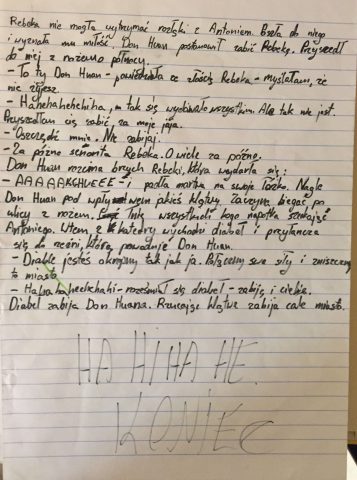 Rebeka nie mogła wytrzymać rozłąki z Antoniem. Poszła do niego
i wyznała mu miłość. Don Huan postanowił zabić Rebekę. Przyszedł
do niej z nożem o północy.
- To ty Don Huan - powiedziała ze złością Rebeka - myślałam, że
nie żyjesz.
- Hahehahehehiha, tak się wydawało wszystkim. Ale tak nie jest.
Przyszedłem cię zabić, za moje jaja.
- Oszczędź mnie. Nie zabijaj.
- Za późno señorita Rebeka. O wiele za późno.
Don Huan rozcina brzuch Rebeki, która wydarła się:
- AAAAKCHUEEE - i padła martwa na swoje łóżko. Nagle
Don Huan pod wpływem jakiejś klątwy. Zaczyna biegać po
ulicy z nożem. Tnie wszystkich kogo napotka szukając
Antoniego. Wtem z katedry wychodzi diabeł i przyłancza
się do rzeźni, którą powoduje Don Huan.
- Diable jesteś okrutny tak jak ja. Połączmy swe siły i zniszczmy
to miasto.
- Hahahahechehahi - roześmiał się diabeł - zabiję i ciebie.
Diabeł zabija Don Huana. Rzucając klątwę zabija całe miasto.
HA HIHA HE.
KONIEC